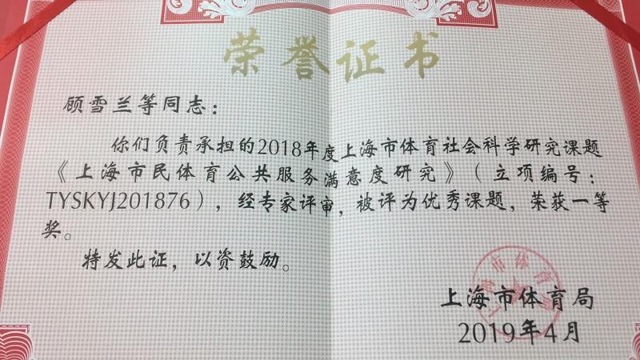 荣誉证书
顾雪兰等同志：
你们负责承担的2018年度上海市体育社会科学研究课题
《上海市民体育公共服务满意度研究》（立项编号：
TYSKYJ201876），经专家评审，被评为优秀课题，荣获一等
奖。
特发此证，以资鼓励。
上海市体育局
2019年4月